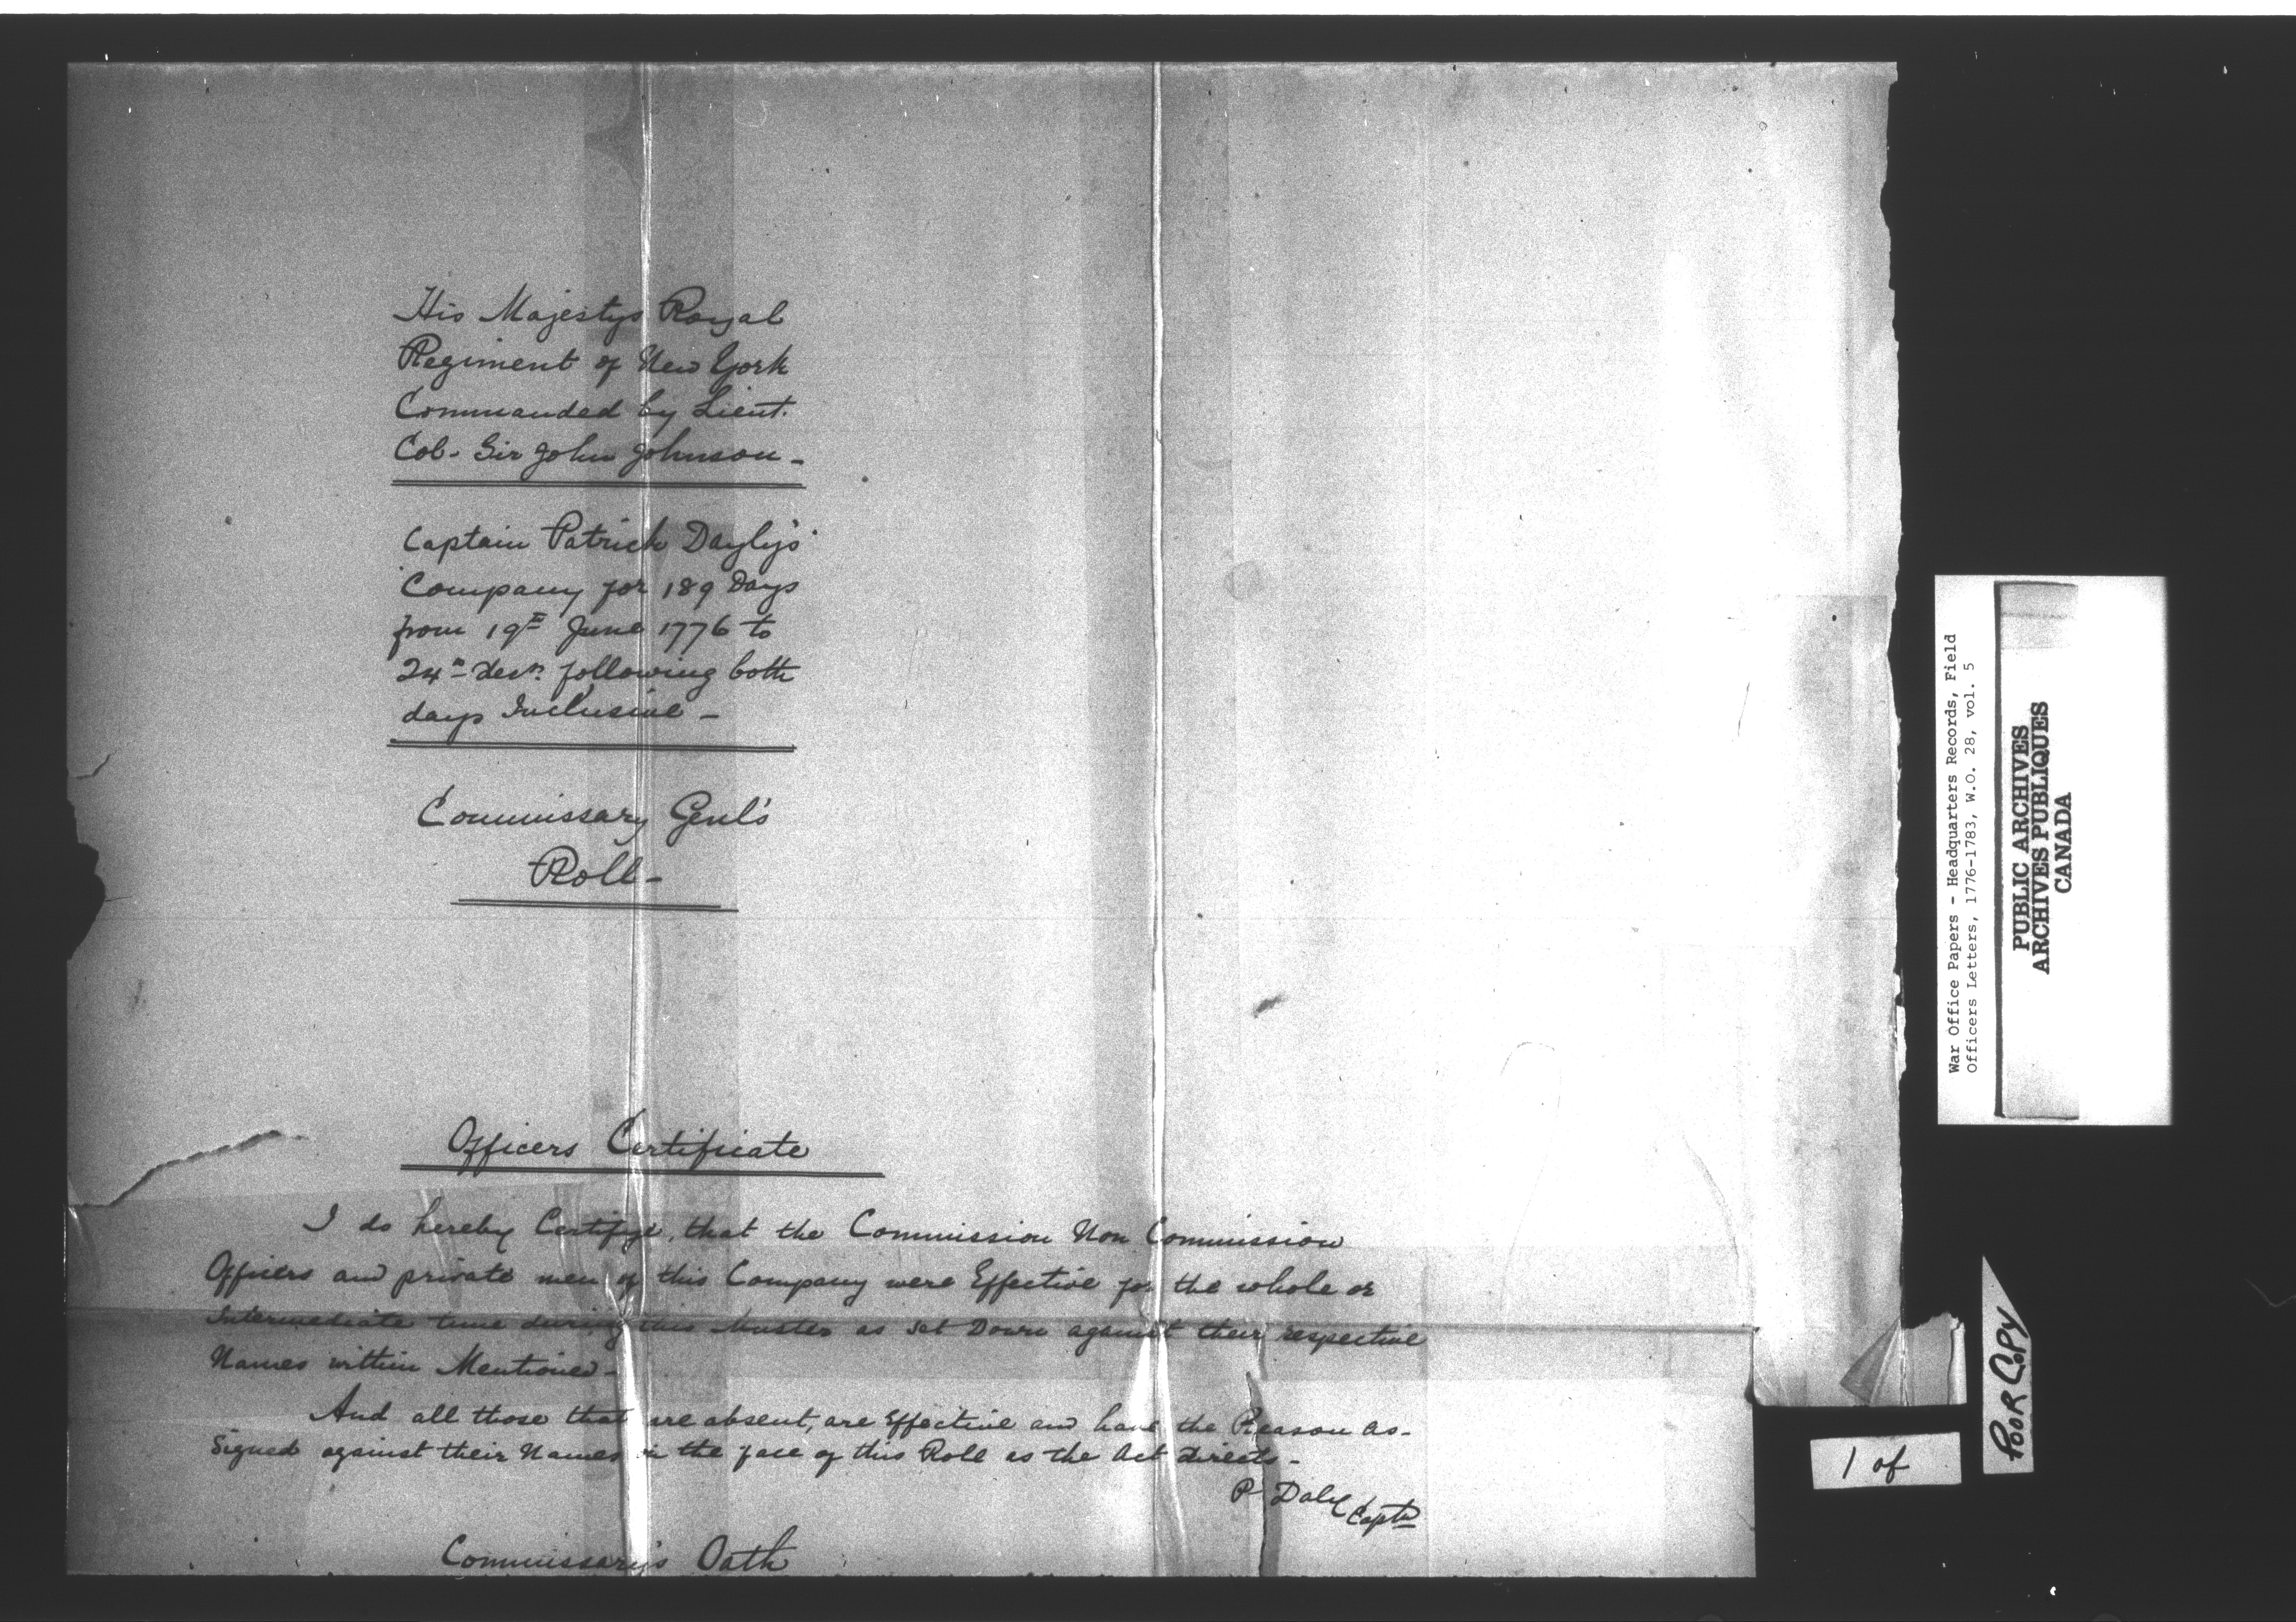 His Majestys Royal
Regiment of New York
Commanded by Lieut.
Col. Sir John Johnson -
Captain Patrick Dayly's
Company for 189 Days
from 19th June 1776 to
24th Decr. following both
days Inclusive -
Commissary Genl's
Roll -
Officers Certificate
I do hereby Certifye, that the Commission Non Commission
Officers and private men of this Company were Effective for the whole or
Intermediate time during this Muster as set Down against their respective
Names within Mentioned -
And all those that are absent, are Effective and have the Reason as-
signed against their Names in the face of this Roll as the Act Directs -
P Daly Captn
Commissary's Oath
War Office Papers - Headquarters Records, Field
Officers Letters, 1776-1783, W.O. 28, vol. 5
PUBLIC ARCHIVES
ARCHIVES PUBLIQUES
CANADA
POOR COPY
1 of